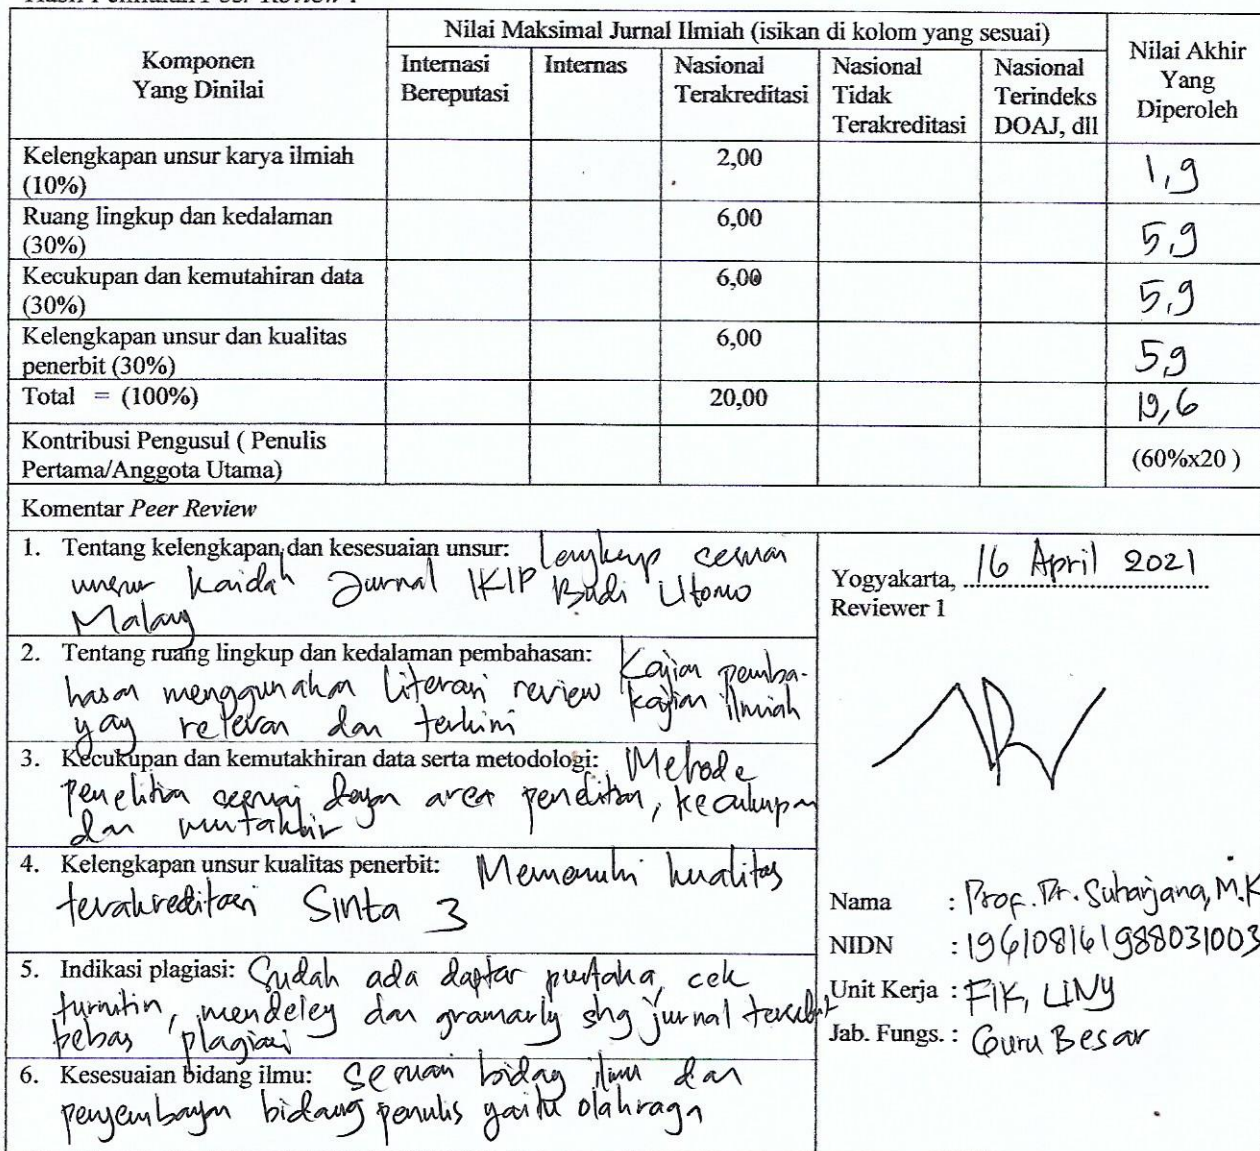 Komponen
Yang Dinilai
Nilai Maksimal Jurnal Ilmiah (isikan di kolom yang sesuai)
Nilai Akhir
Yang
Diperoleh
Internasi
Bereputasi
Internas
Nasional
Terakreditasi
Nasional
Tidak
Terakreditasi
Nasional
Terindeks
DOAJ, dll
Kelengkapan unsur karya ilmiah
(10%)
2,00
1,9
Ruang lingkup dan kedalaman
(30%)
6,00
5,9
Kecukupan dan kemutahiran data
(30%)
6,00
5,9
Kelengkapan unsur dan kualitas
penerbit (30%)
6,00
5,9
Total = (100%)
20,00
19,6
Kontribusi Pengusul ( Penulis
Pertama/Anggota Utama)
(60%x20 )
Komentar Peer Review
1. Tentang kelengkapan dan kesesuaian unsur: Lengkap sesuai
unsur kaidah Jurnal IKIP Budi Utomo
Malang
2. Tentang ruang lingkup dan kedalaman pembahasan: Kajian pemba-
hasan menggunakan literasi review kajian ilmiah
yang relevan dan terkini
3. Kecukupan dan kemutakhiran data serta metodologi: Metode
penelitian sesuai dengan area penelitian, kecukupan
dan mutakhir
4. Kelengkapan unsur kualitas penerbit: Memenuhi kualitas
terakreditasi Sinta 3
5. Indikasi plagiasi: Sudah ada daftar pustaka, cek
turnitin, mendeley dan gramarly shg jurnal tersebut
bebas plagiasi
6. Kesesuaian bidang ilmu: Sesuai bidang ilmu dan
pengembangan bidang penulis yaitu olahraga
Yogyakarta, 16 April 2021
Reviewer 1
Nama : Prof. Dr. Suharjana, M.K
NIDN : 196108161988031003
Unit Kerja : FIK, UNY
Jab. Fungs. : Guru Besar